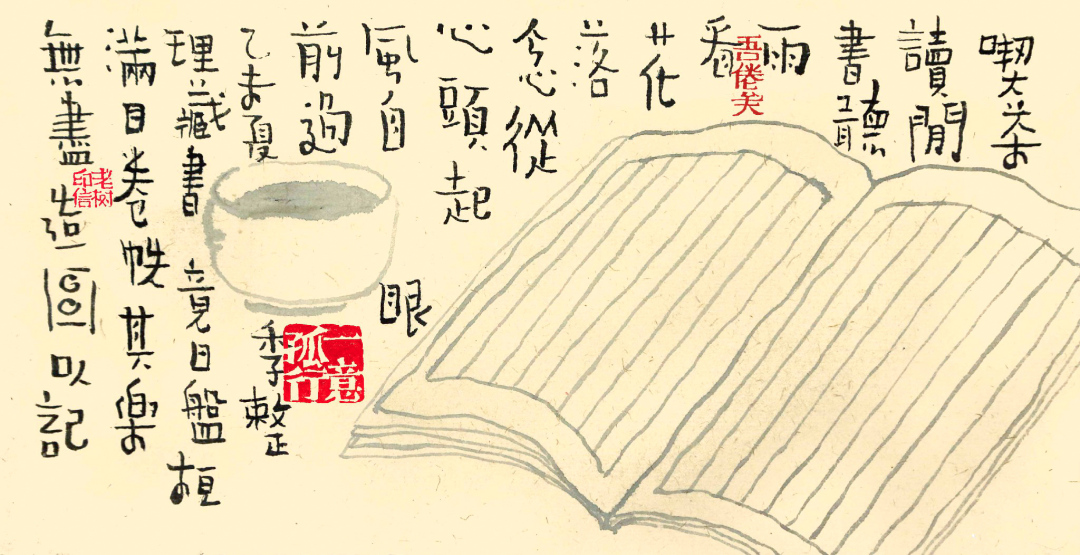 喫茶
讀閒
書聽
雨
看
花
落
念從
心頭起
風自眼
前過
乙未夏季整
理藏書竟日盤桓
滿目卷帙其樂
無盡造圖以記
一意
孤行
老树
印信